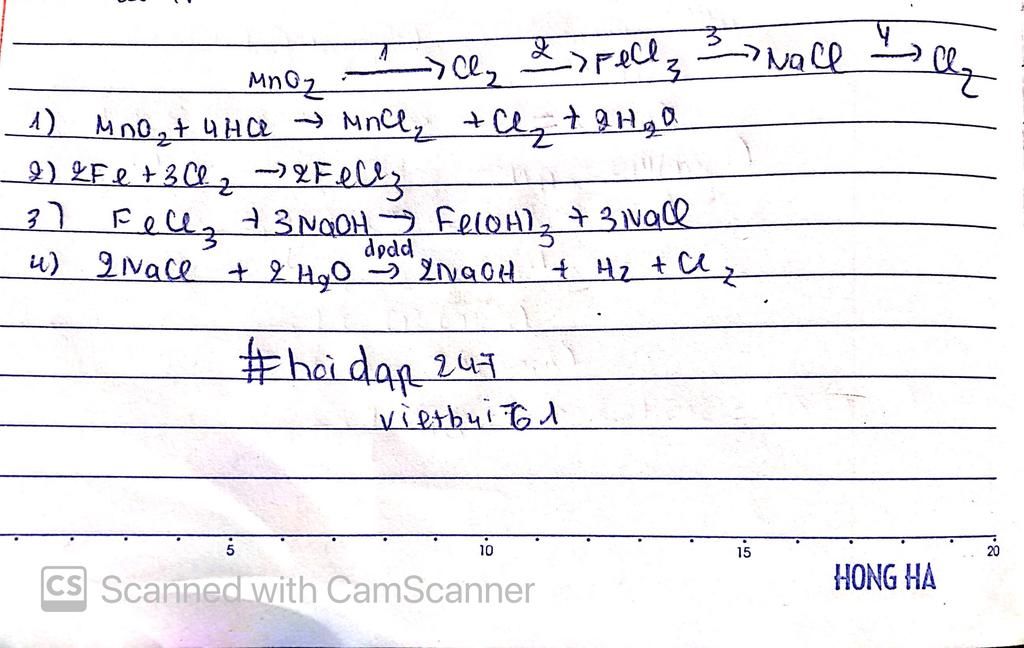 MnO₂ —1→ Cl₂ —2→ FeCl₃ —3→ NaCl —4→ Cl₂
1) MnO₂ + 4HCl → MnCl₂ + Cl₂ + 2H₂O
2) 2Fe + 3Cl₂ → 2FeCl₃
3) FeCl₃ + 3NaOH → Fe(OH)₃ + 3NaCl
4) 2NaCl + 2H₂O —dpdd→ 2NaOH + H₂ + Cl₂
#hoidap247
5 10 15 20
HONG HA
CS Scanned with CamScanner